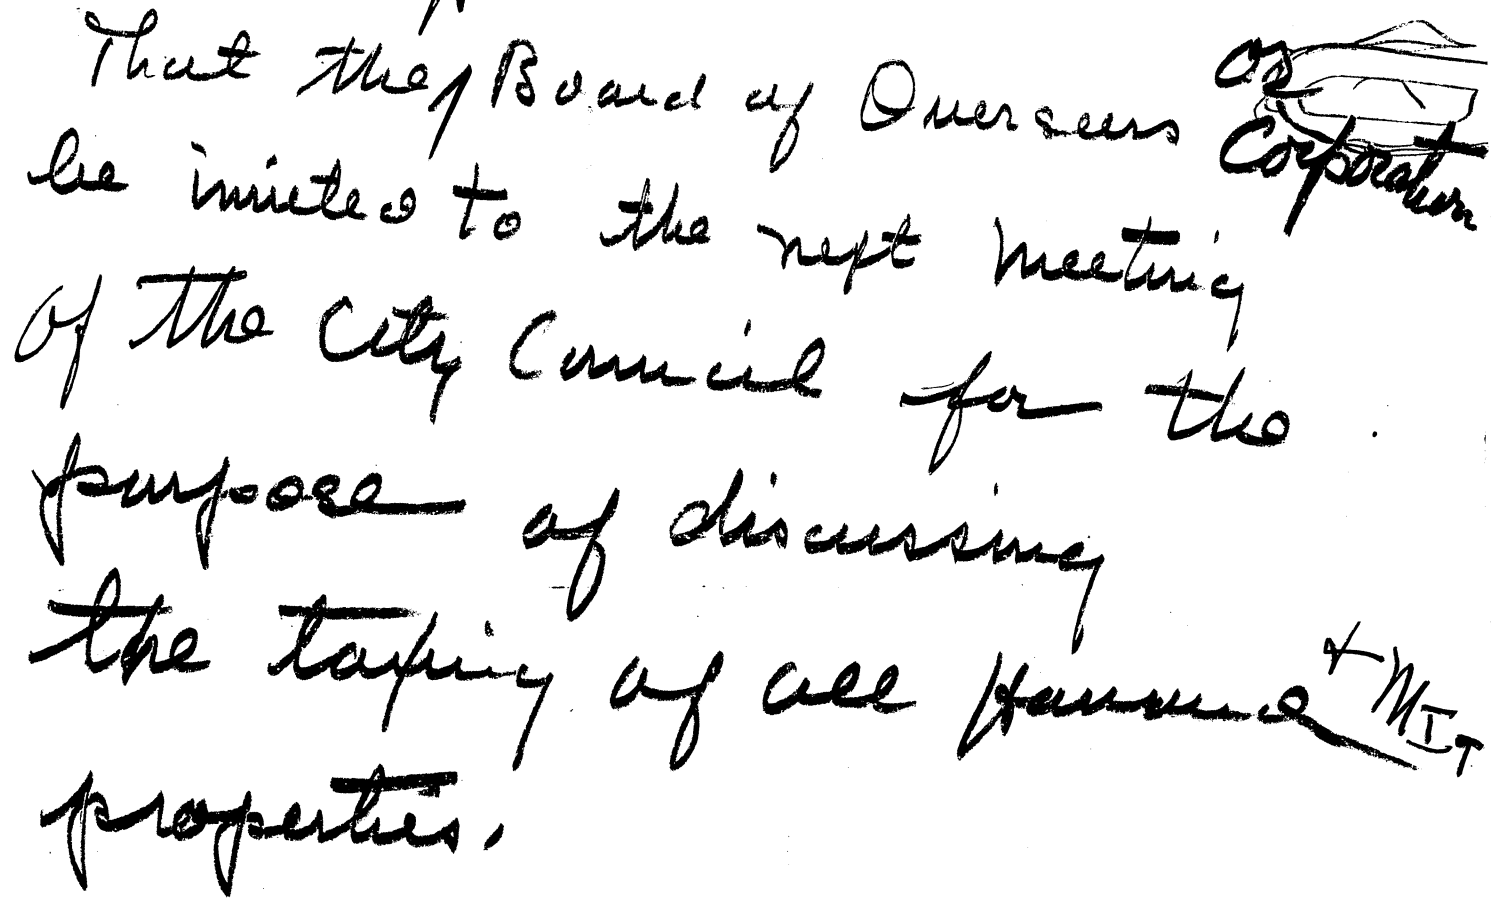 That the Board of Overseers or Corporation
be invited to the next meeting
of the City Council for the
purpose of discussing
the taxing of all Harvard + MIT
properties.